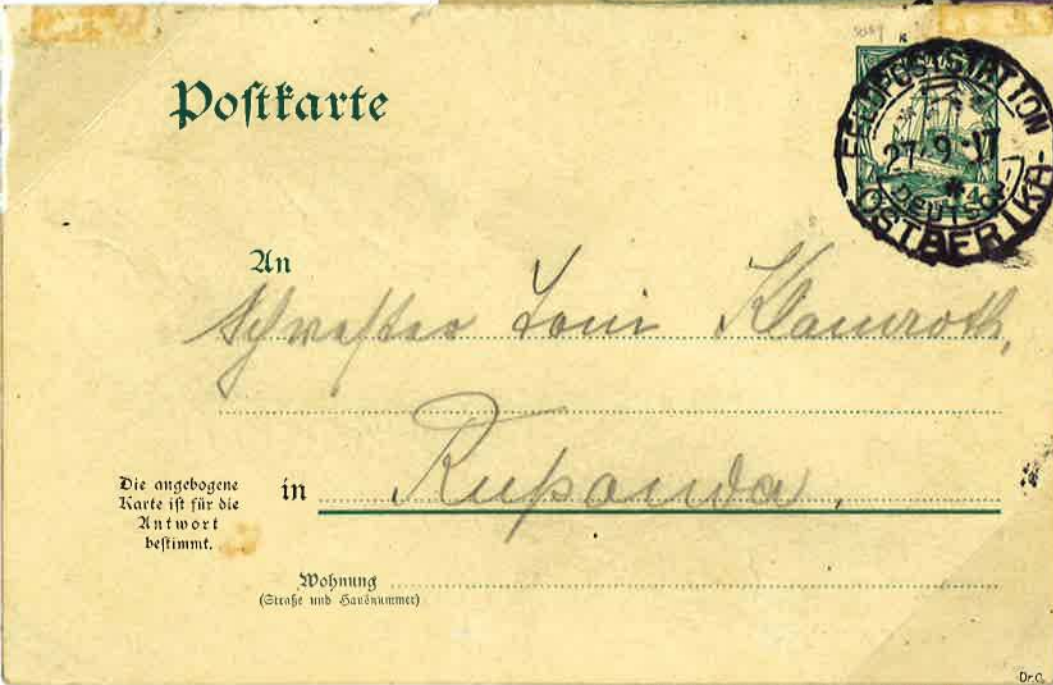 Postkarte
FELDPOSTSTATION
27-9-17
* 4
DEUTSCH-
OSTAFRIKA
An
Schwester Loni Klamroth,
Die angebogene
Karte ist für die
Antwort
bestimmt.
in Ruponda.
Wohnung
(Straße und Hausnummer)
Dr.O.